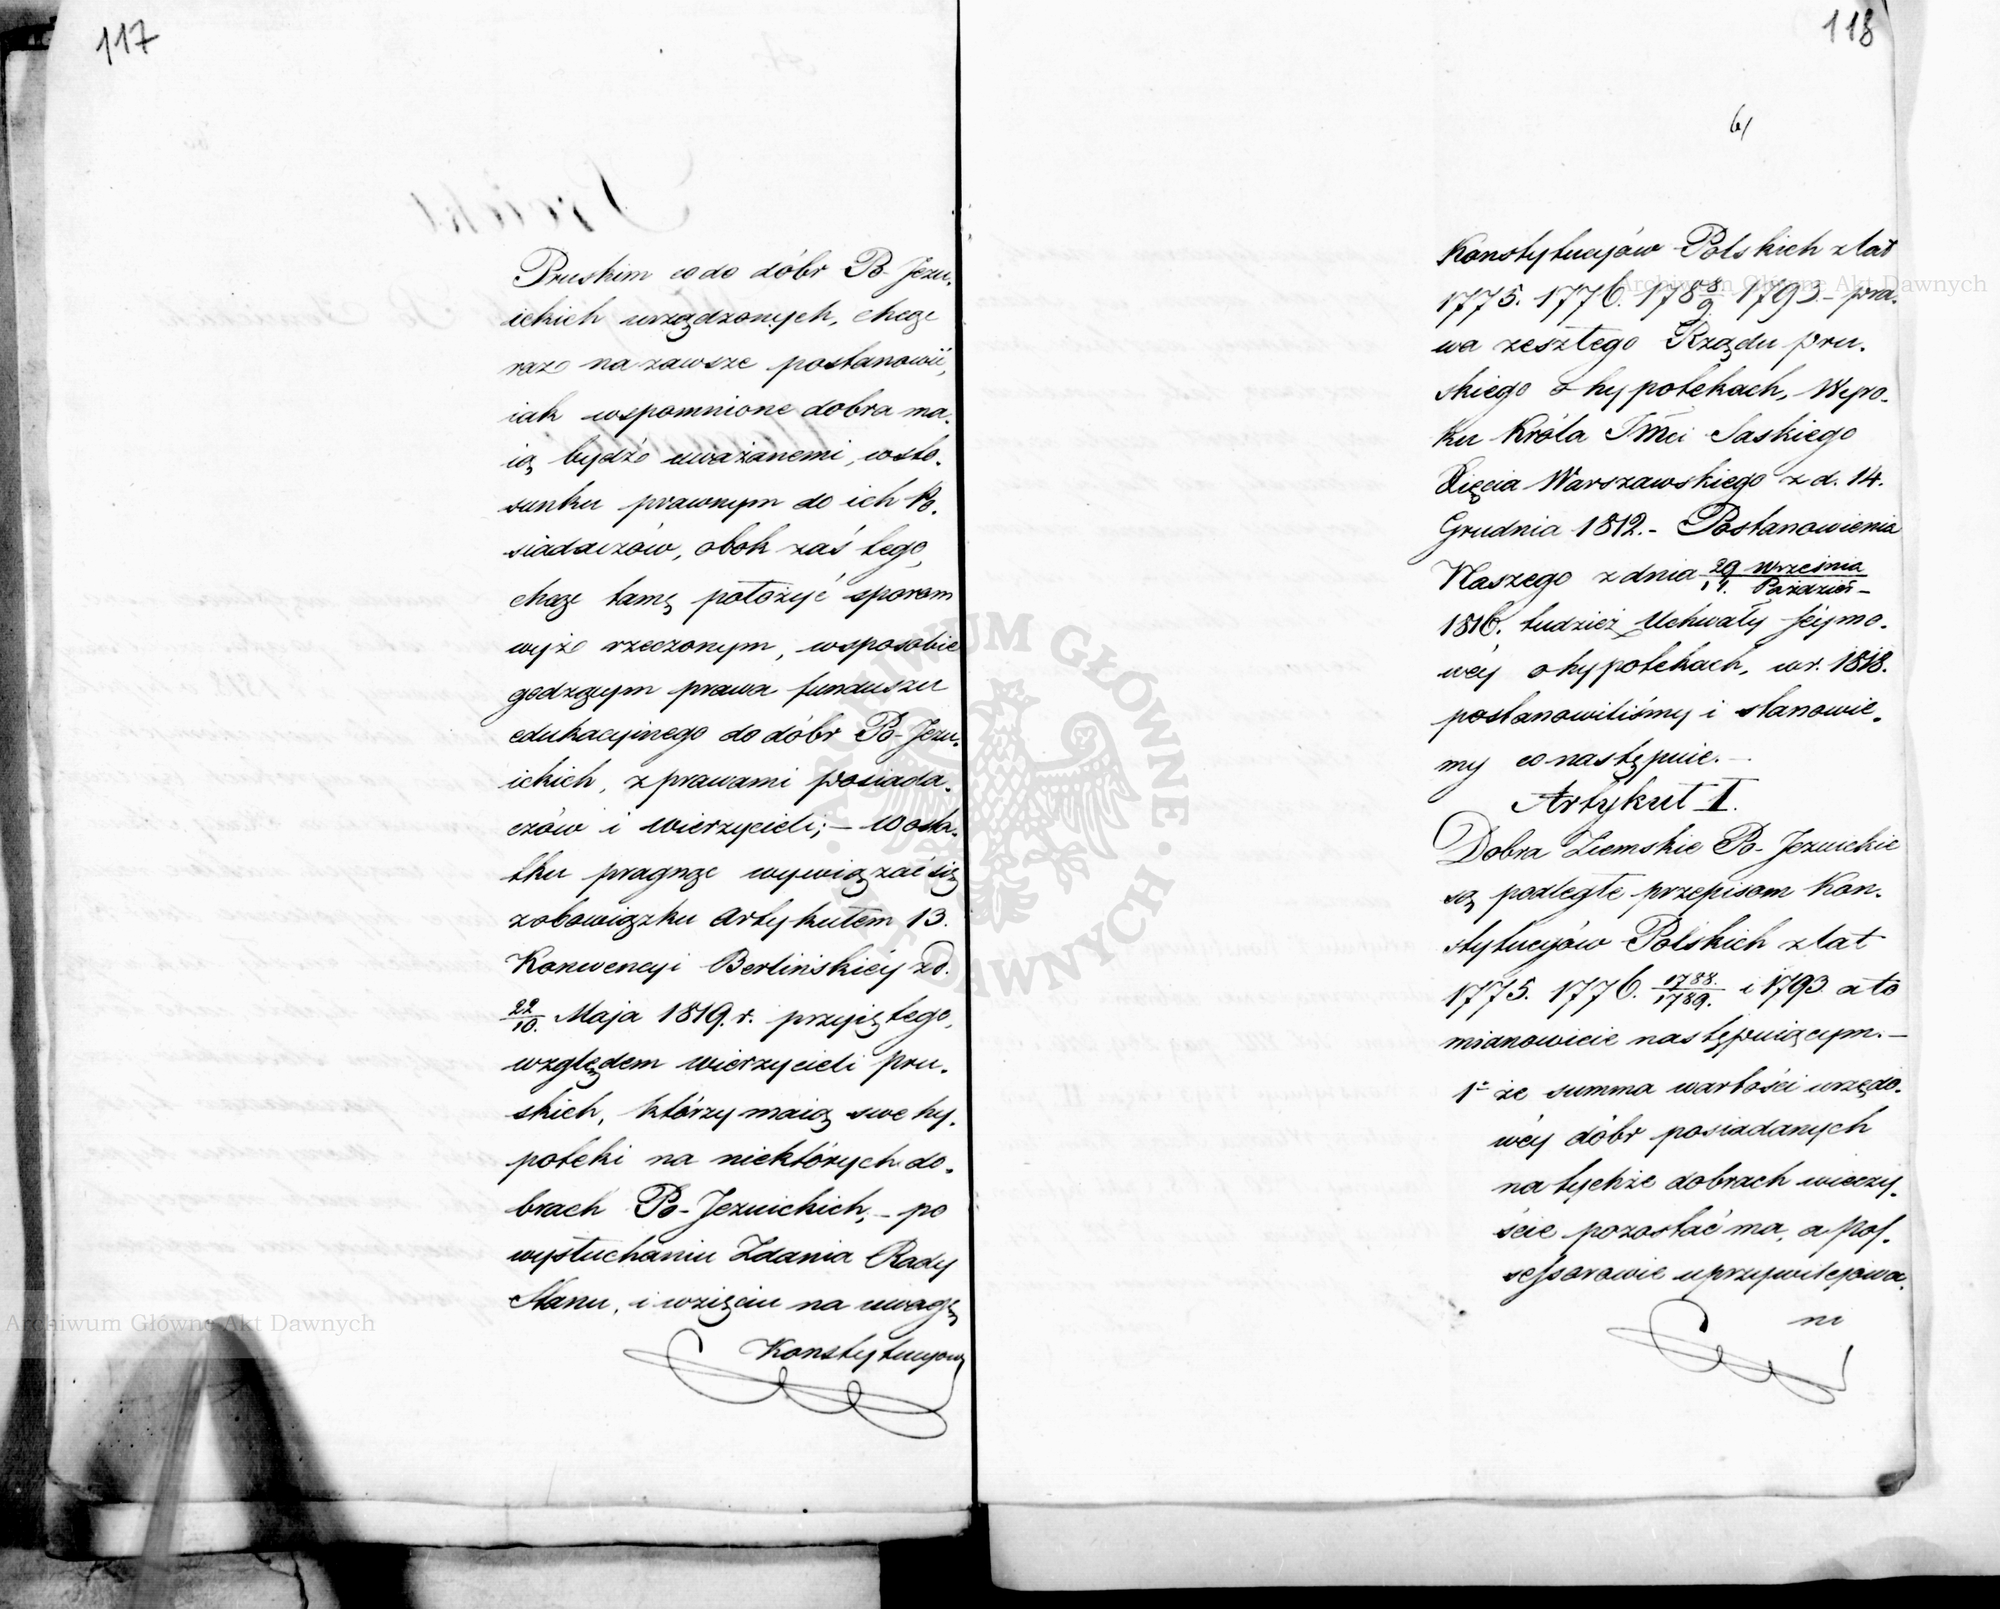 117
Pruskim co do dóbr Po-Jezu-
ickich urządzonych, chcąc
raz na zawsze postanowić,
iak wspomnione dobra ma-
ią bydź uważanemi, w sto-
sunku prawnym do ich Po-
siadaczów, obok zaś tego,
chcąc tamę położyć sporom
wyż rzeczonym, w sposobie
godzącym prawa funduszu
edukacyinego do dóbr Po-Jezu-
ickich, z prawami posiada-
czów i wierzycieli; - W osta-
tku pragnąc wywiązać się
z obowiązku Artykułem 13.
Konwencyi Berlińskiéy z d.
22/10. Maja 1819. r. przyiętego,
względem wierzycieli pru-
skich, którzy maią swe hy-
poteki na niektórych do-
brach Po-Jezuickich, - po
wysłuchaniu Zdania Rady
Stanu, i wzięciu na uwagę
Konstytucyow
118
6/
Konstytucyów Polskich z lat
1775. 1776. 178 8/9. 1793 - pra-
wa zeszłego Rządu pru-
skiego o hypotekach, Wyro-
ku Króla Jmci Saskiego
Xięcia Warszawskiego z d. 14.
Grudnia 1812. - Postanowienia
Naszego z dnia 29 Września / 11. Paździer -
1816. tudzież Uchwały Séymo-
wéy o hypotekach, w r. 1818.
postanowiliśmy i stanowie-
my co następuie. -
Artykuł I.
Dobra Ziemskie Po-Jezuickie
są podległe przepisom Kon-
stytucyów Polskich z lat
1775. 1776. 1788./1789. i 1793 a to
mianowicie następuiącym. -
1° że summa wartości urzędo-
wéy dóbr posiadanych
na tychże dobrach wieczy-
ście pozostać ma, a Pos-
sessorowie uprzywilejowa-
ni
ARCHIWUM GŁÓWNE AKT DAWNYCH
Archiwum Główne Akt Dawnych
Archiwum Główne Akt Dawnych